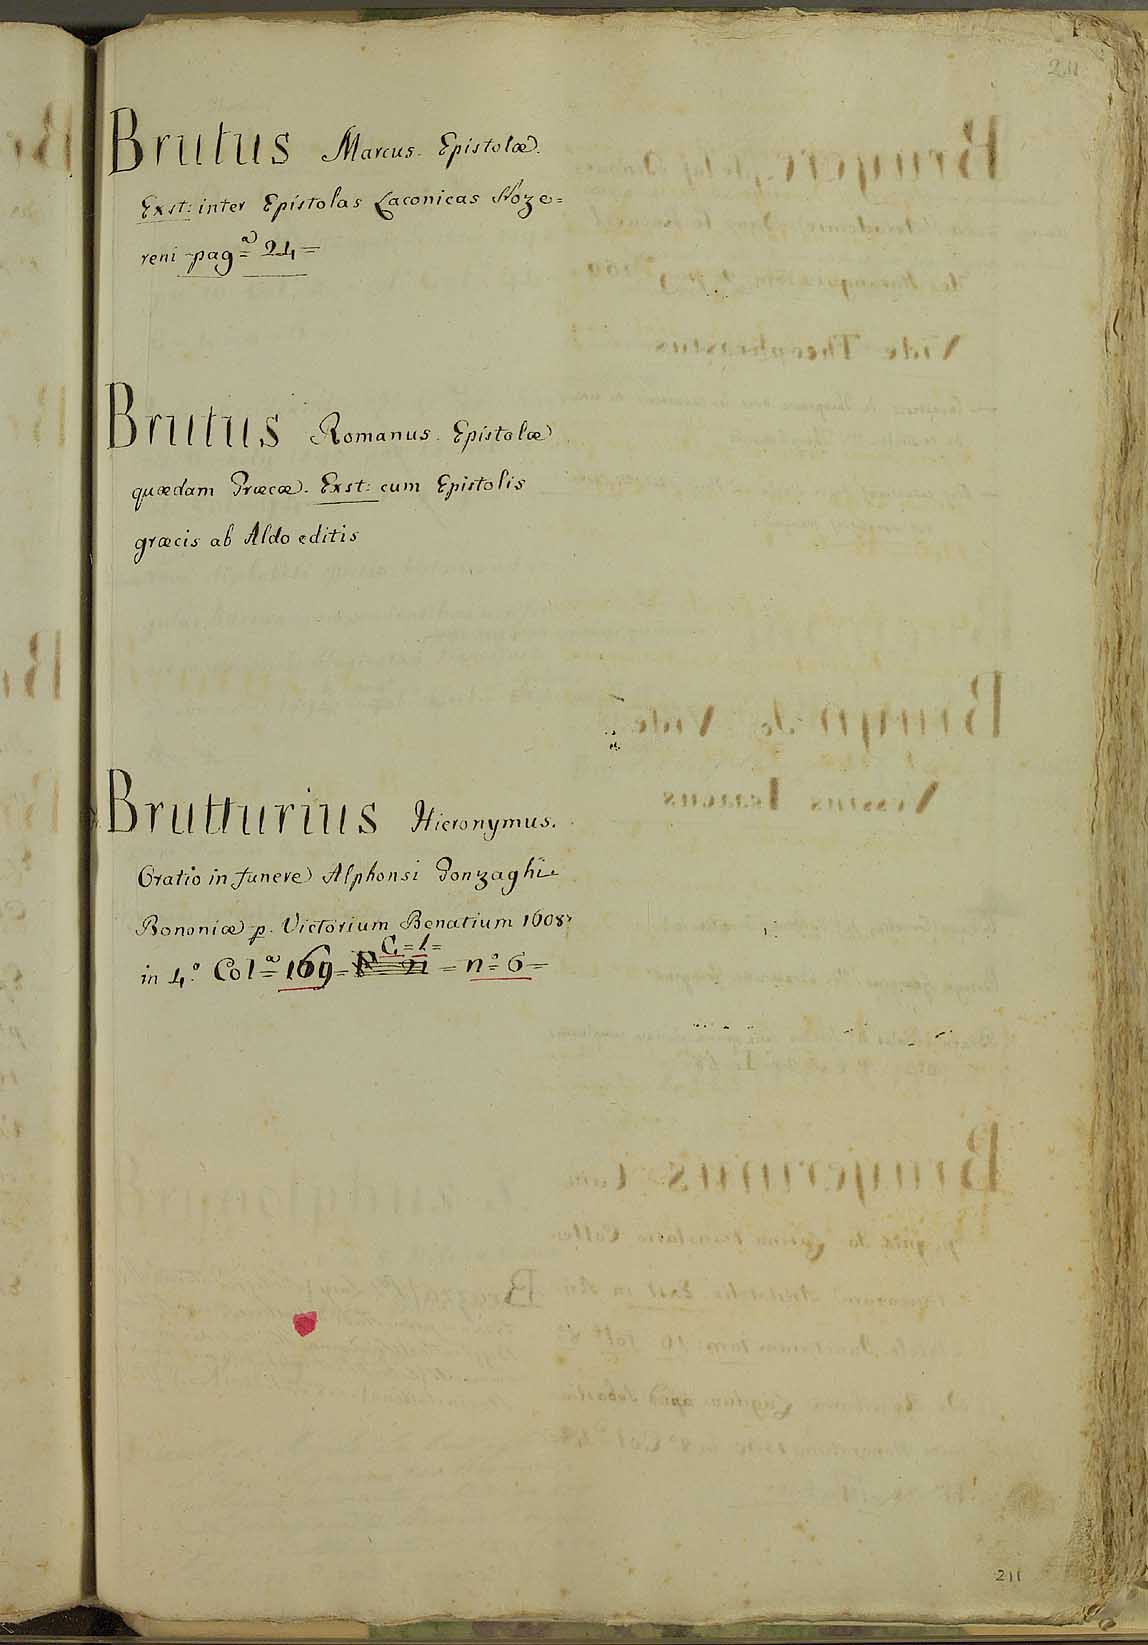 211
Brutus Marcus. Epistolæ.
Exst: inter Epistolas Laconicas Noze=
reni pag.ª = 24 =
Brutus Romanus. Epistolæ
quædam Græcæ. Exst: cum Epistolis
græcis ab Aldo editis
Brutturius Hieronymus.
Oratio in funere Alphonsi Gonzaghi
Bononiæ p. Victorium Benatium 1608
C = 1 =
in 4.º Col.ª = 169 = = n.º 6 =
211